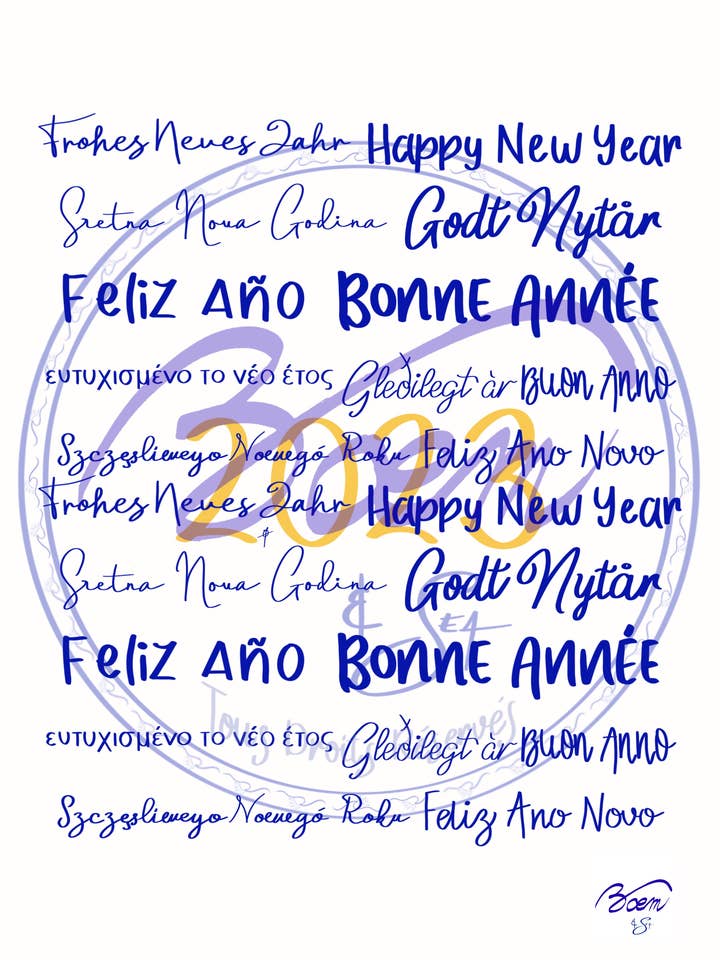 Frohes Neues Jahr Happy New Year
Sretna Nova Godina Godt Nytår
Feliz Año Bonne Année
ευτυχισμένο το νέο έτος Gleðilegt àr Buon Anno
Szczęsliewego Noewegó Roku Feliz Ano Novo
2023
Frohes Neues Jahr Happy New Year
Sretna Nova Godina Godt Nytår
& Set
Feliz Año Bonne Année
Tous Droits Réservés
ευτυχισμένο το νέο έτος Gleðilegt àr Buon Anno
Szczęsliewego Noewegó Roku Feliz Ano Novo
Boem
& Set